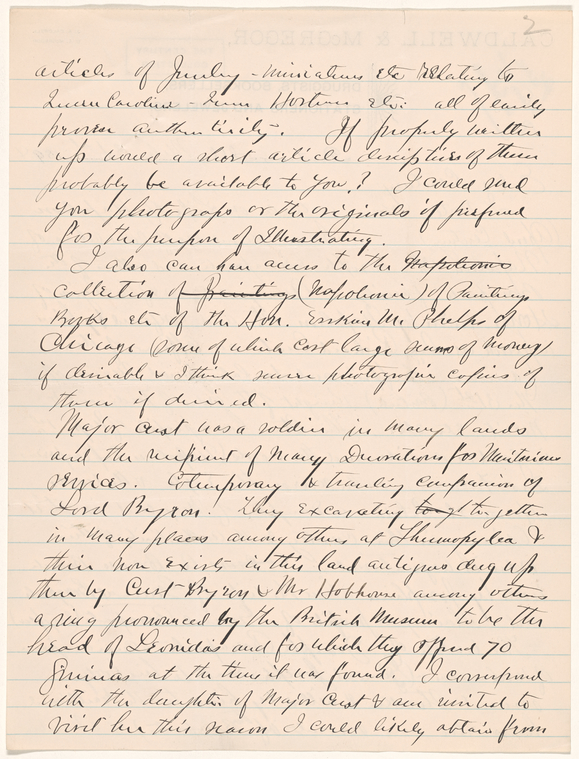 2
articles of Jewelry - miniatures etc Relating to
Queen Caroline - Queen Hortense etc: all of easily
proven authenticity. If properly written
up would a short article descriptive of them
probably be available to you? I could send
you photograps or the originals if prefered
for the purpose of Illustrating.
I also can have access to the Napoleonic
collection of Paintings (Napoleonic) of Paintings
Books etc of the Hon. Erskine M. Phelps of
Chicago (some of which cost large sums of money)
if desirable & I think secure photografic copies of
them if desired.
Major Cust was a soldier in many lands
and the recipient of many Decorations for Meritorious
services. Cotemporary & traveling companion of
Lord Byron. They Excavating together
in many places among others at Thermopylea &
their now Exists in this land antiques dug up
then by Cust Byron & Mr Hobhouse among others
a ring pronounced by the British Museum to be the
head of Leonidas and for which they offered 70
Guineas at the time it was found. I correspond
with the daughter of Major Cust & am invited to
visit her this season I could likely obtain from